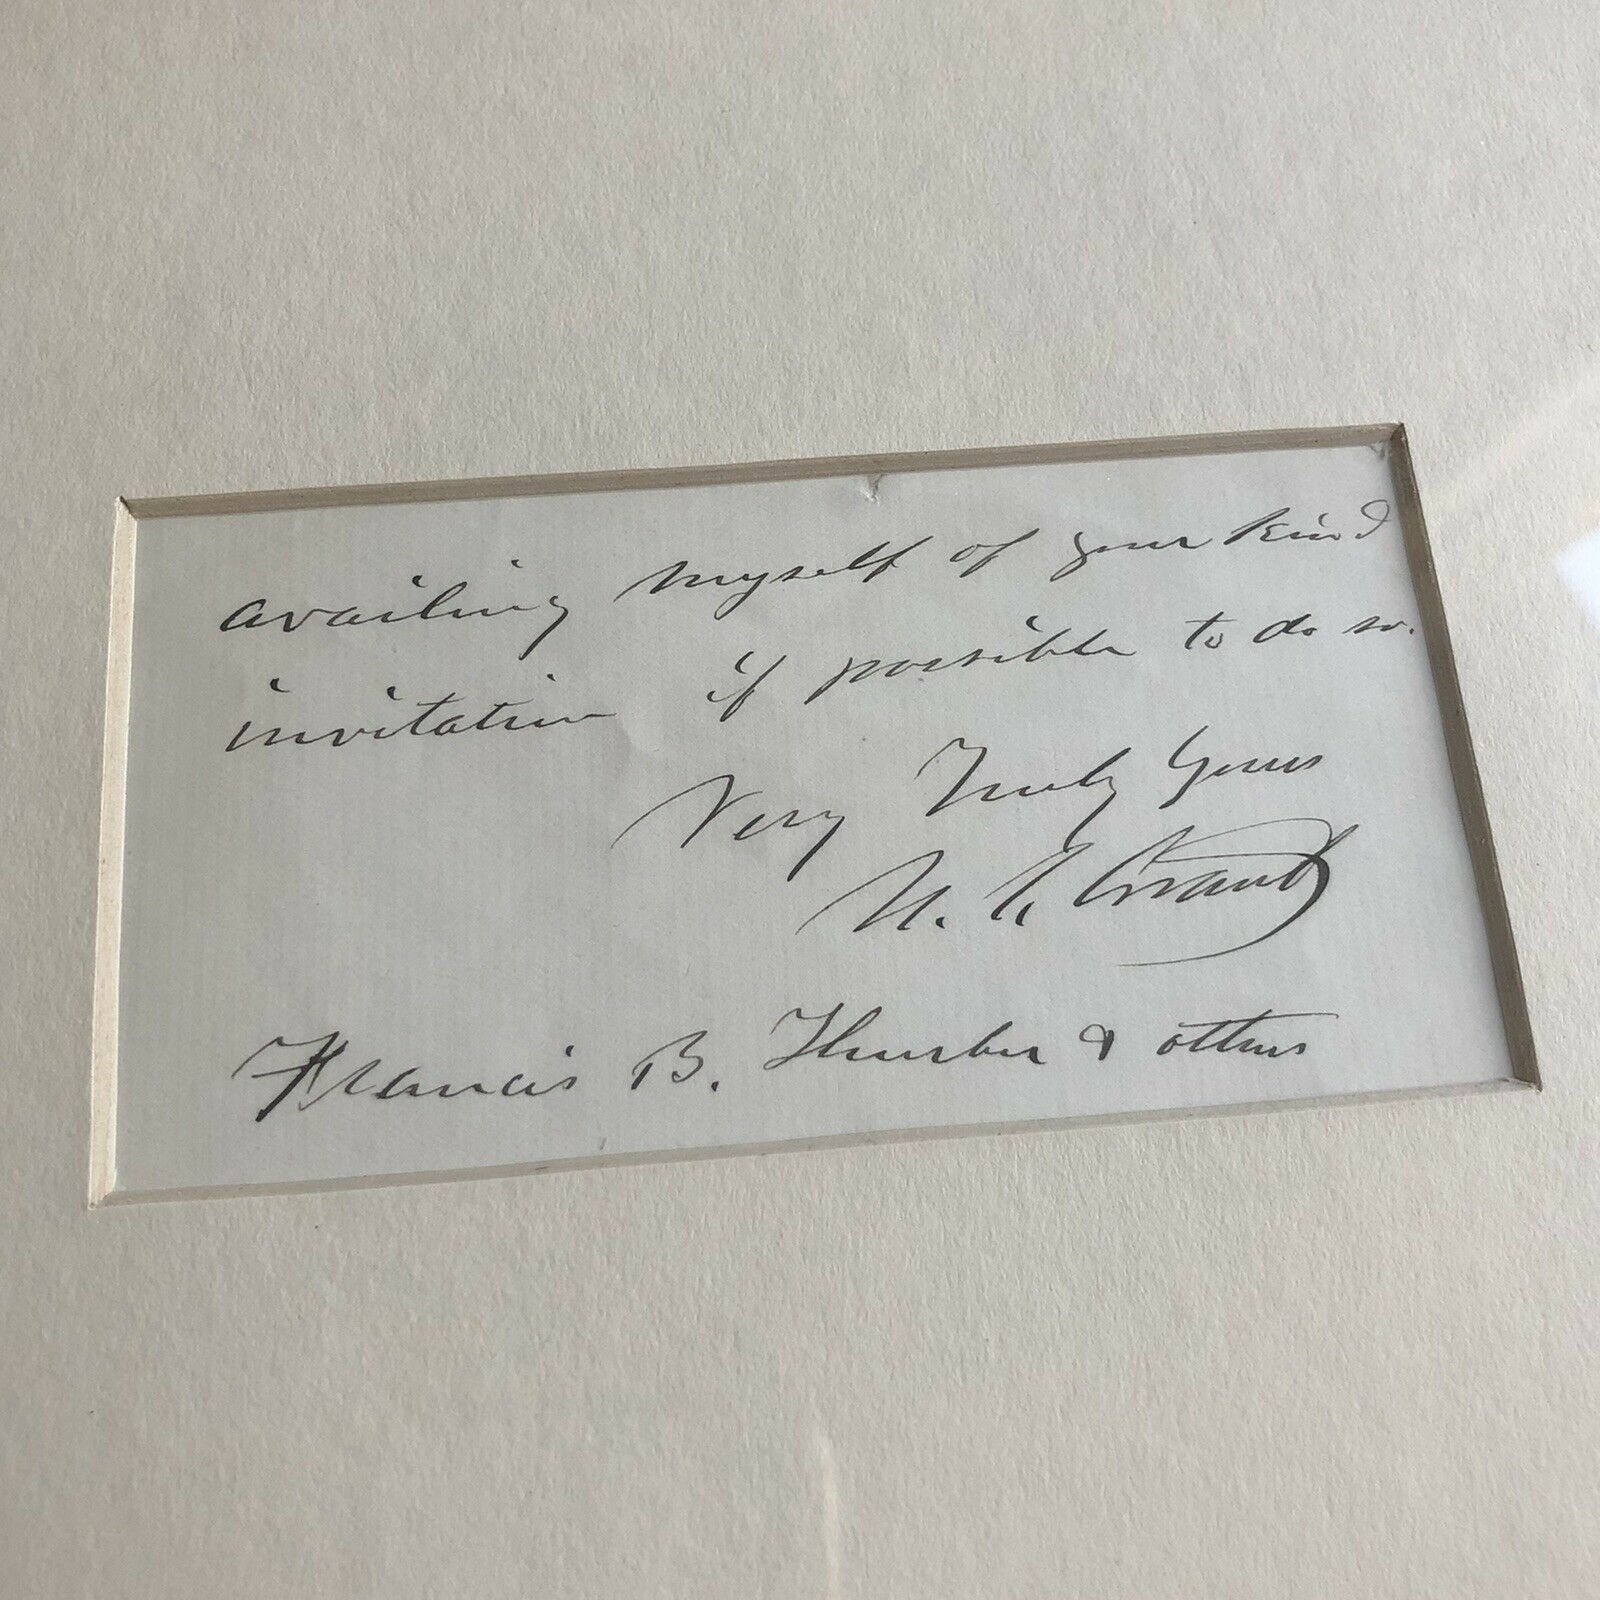 availing myself of your kind
invitation if possible to do so.
Very Truly Yours
U. S. Grant
Francis B. Thurber & others